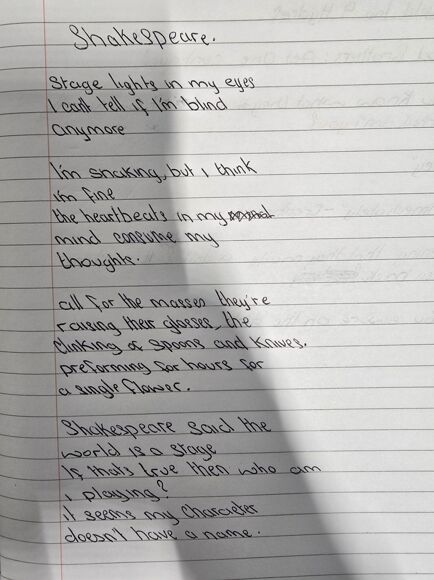 Shakespeare.
Stage lights in my eyes
I can't tell if I'm blind
anymore
I'm shaking, but I think
I'm fine
the heartbeats in my
mind consume my
thoughts.
all for the masses they're
raising their glasses, the
clinking of spoons and knives.
preforming for hours for
a single flower.
Shakespeare said the
world is a stage
If that's true then who am
I playing?
it seems my character
doesn't have a name.